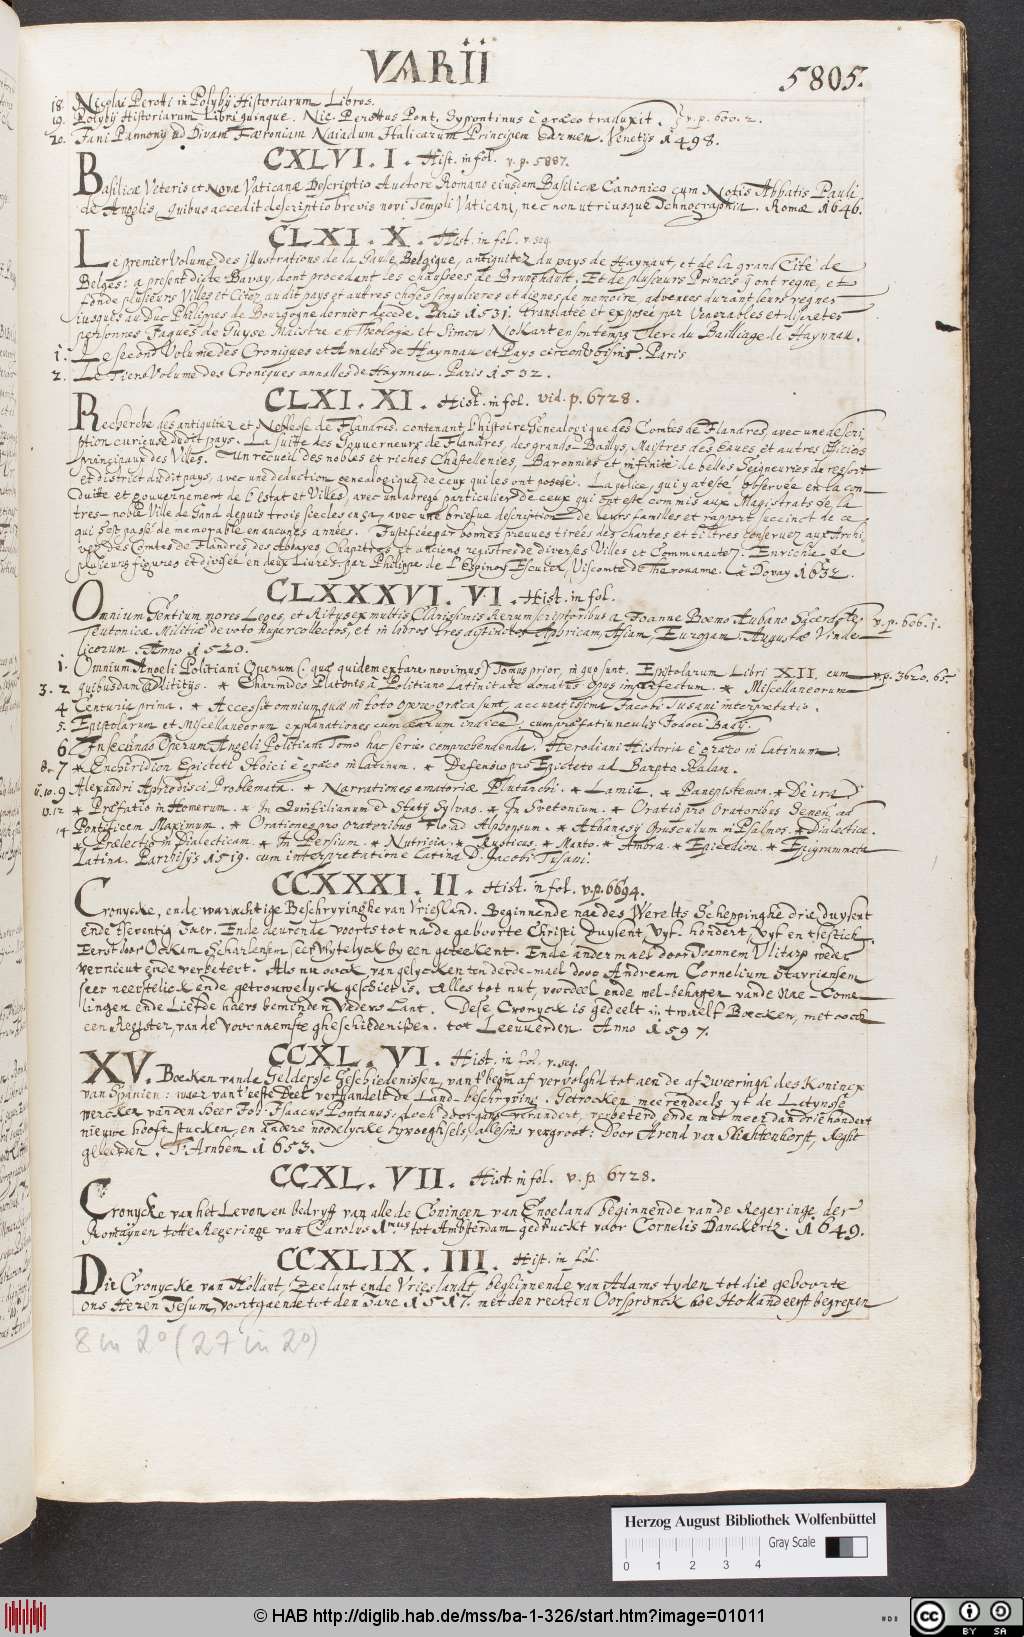 VARII
5805.
18. Nicolai Perotti in Polybij Historiarum Libros.
19. Polybij Historiarum Libri quinque, Nic. Perottus Pont. Sypontinus è græco traduxit. v. p. 600. 2.
20. Jani Pannonij ad Divam Feroniam Naiadum Italicarum Principem Carmen. Venetijs 1498.
CXLVI. I. Hist. in fol. v. p. 5887.
Basilicæ Veteris et Novæ Vaticanæ Descriptio Auctore Romano eiusdem Basilicæ Canonico cum Notis Abbatis Pauli
de Angelis, Quibus accedit descriptio brevis novi Templi Vaticani, nec non utriusque Ichnographia. Romæ 1646.
CLXI. X. Hist. in fol. v. seq.
Le premier Volume des jllustrations de la Gaule Belgique, antiquitez du pays de Haynaut, et de la grand Cité de
Belges: a present dicte Bavay, dont procedant les chaussées de Brunehault. Et de plusieurs Princes q̃ ont regne, et
fonde plusieurs Villes et Citez, audit pays et autres choses singulieres et dignes de memoire, advenues durant leurs regnes
iusques au Duc Philippes de Bourgogne dernier decede. Paris 1531. translatée et exposée par Venerables et discretes
personnes Jaques de Guyse Maistre en Theologie et Simon Nockart en son temps Clerc du Bailliage de Haynnau.
1. Le second Volume des Croniques et Annales de Haynnau et Pays circonvoisins. Paris
2. Le Tiers Volume des Croniques annalles de Haynneu. Paris 1532.
CLXI. XI. Hist. in fol. vid. p. 6728.
Recherche des antiquitez et Noblesse de Flandres. contenant l'histoire Genealogique des Comtes de Flandres, avec une descri-
ption curieuse dudit pays. La suitte des Gouverneurs de Flandres, des grands Baillys, Maistres des Eaues et autres Officiers
principaux des Villes. Un recueil des nobles et riches Chastellenies, Baronnies et infinité de belles Seigneuries du ressort
et district dudit pays, avec une deduction genealogique de ceux qui les ont posedé. La police, qui y a esté observée en la con-
duite et gouvernement de l'estat et Villes, avec un abregé particulier de ceux qui ont esté commis aux Magistrats de la
tres-noble Ville de Gand depuis trois siecles en ça, avec une briefue description de leurs familles et rapport succinct de ce
qui s'est passé de memorable en aucunes années. Justifiée par bonnes preuues tirées des chartes et tiltres conservez aux Archi-
ves des Comtes de Flandres, des Abbayes Chapitres et anciens registres de diverses Villes et Communautez. Enrichie de
plusieurs figures et divisée en deux Liures par Philippe de L'Espinoy Escuier, Viscomte de Therouanne. à Dovay 1632.
CLXXXVI. VI. Hist. in fol.
Omnium Gentium mores Leges, et Ritus ex multis clarissimis Rerum scriptoribus a Joanne Boemo Aubano Sacerdote v. p. 606. 1.
Teutonicæ Militiæ devoto nuper collectos, et in libros tres distinctos Aphricam, Asiam, Europam. Augustæ Vinde-
licorum Anno 1520.
1. Omnium Angeli Politiani Operum (: quæ quidem extare novimus) Tomus prior, in quo sunt. Epistolarum Libri XII. cum v. p. 3620. 65.
3. 2 quibusdam addititijs. * Charmideo Platonis à Politiano Latinitate donatus Opus imperfectum. * Miscellaneorum
4 Centuria prima. * Accessit omnium quæ in toto opere græca sunt, accuratissima Jacobi Tusani interpretatio.
5. Epistolarum et Miscellaneorum explanationes cum earum indice, cumque præfatiunculis Jodoci Badij.
6. In secundo Operum Angeli Politiani Tomo hac serie comprehendenda. Herodiani Historia è græco in latinum.
8. 7 * Enchiridion Epicteti Stoici è græco in latinum. * Defensio pro Epicteto ad Barpto Skalam.
11. 10. 9 Alexandri Aphrodisei Problemata. * Narrationes amatoriæ Plutarchi. * Lamia. * Panepistemon. * De ira
13. 12 * Præfatio in Homerum. * In Quintilianum et Statij Sylvas. * In Svetonium. * Oratio pro Oratoribus Senen. ad
14 Pontificem Maximum. * Orationes pro oratoribus Flo: ad Alphonsum. * Athanasij Opusculum in Psalmos. * Dialectica.
* Prælectio in Dialecticam. * In Persium. * Nutricia. * Rusticus. * Manto. * Ambra. * Epicedion. * Epigrammata
Latina. Parrhisijs 1519. cum interpretatione latina D. Jacobi Tusani.
CCXXXI. II. Hist. in fol. v. p. 6694.
Cronycke, ende warachtige Beschryvinghe van Vriesland. Beginnende nae des Werelts Scheppinghe drie Duysent
ende tseventig Jaer. Ende duerende voorts tot na de geboorte Christi, Duysent, Vyf hondert, Vyf en tsestich.
Eerst door Ockam Scharlensem seer vlytelyck by een geteekent. Ende andermael door Joannem Vlitarp weder
vernieut ende verbetert. Als nu oock van gelycken ten derde-mael door Andream Cornelium Stavriensem
seer neerstelick ende getrouwelyck geschiet is. Alles tot nut, voordeel ende wel-behagen vande Nae-Come-
lingen ende Liefde haers beminden Vaders Lant. Dese Cronyck is gedeelt in twaelf Boecken, met oock
een Register, van de Voornaemste gheschiedenissen. tot Leeuwerden Anno 1597.
CCXL. VI. Hist. in fol. v. seq.
XV. Boeken vande Geldersse Geschiedenissen, van't begin af vervolghd tot aen de afzweeringh des Koninex
van Spanien: waer van't eerste Deel verhandelt de Land-beschryving. Getrocken meerendeels yt de Latynsse
wercken van den Heer Joh: Isaacus Pontanus. doch doorgans verandert, verbeterd ende met meer dan driehondert
nieuwe hooft stucken, en andere noodelycke byvoeghsels, allesins vergroot: Door Arend van Slichtenhorst, Reght
geleerden. T'Arnhem 1653.
CCXL. VII. Hist. in fol. v. p. 6728.
Cronycke van het Leven en bedryf van alle de Coningen van Engeland beginnende van de Regeringe der
Romaynen totte Regeringe van Carolus 1mus tot Amsterdam gedruckt voor Cornelis Danckertz. 1649.
CCXLIX. III. Hist. in fol.
Die Cronycke van Hollant, Zeelant ende Vrieslandt, beghinnende van Adams tyden tot die geboorte
ons Heren Jesum, voortgaende tot den Jare 1517. met den rechten Oorspronck hoe Holland eerst begrepen
8 in 2° (27 in 2°)
Herzog August Bibliothek Wolfenbüttel
Gray Scale
0 1 2 3 4
© HAB http://diglib.hab.de/mss/ba-1-326/start.htm?image=01011
cc BY SA